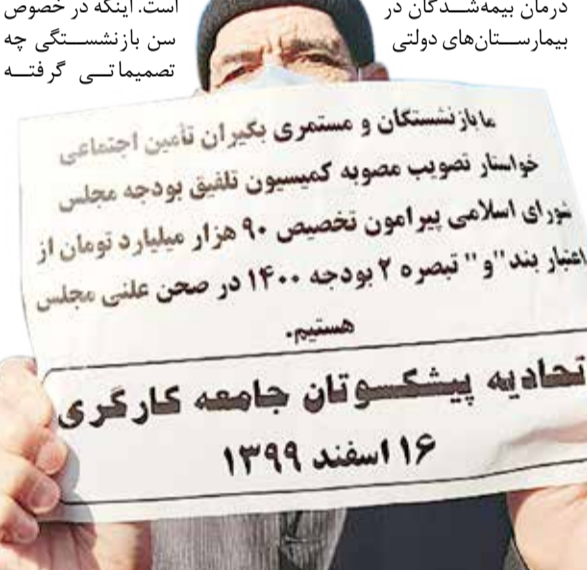 درمان بیمه‌شدگان در
بیمارستان‌های دولتی
است. اینکه در خصوص
سن بازنشستگی چه
تصمیماتی گرفته
ما بازنشستگان و مستمری بگیران تأمین اجتماعی
خواستار تصویب مصوبه کمیسیون تلفیق بودجه مجلس
شورای اسلامی پیرامون تخصیص ۹۰ هزار میلیارد تومان از
اعتبار بند "و" تبصره ۲ بودجه ۱۴۰۰ در صحن علنی مجلس
هستیم.
تحادیه پیشکسوتان جامعه کارگری
۱۶ اسفند ۱۳۹۹